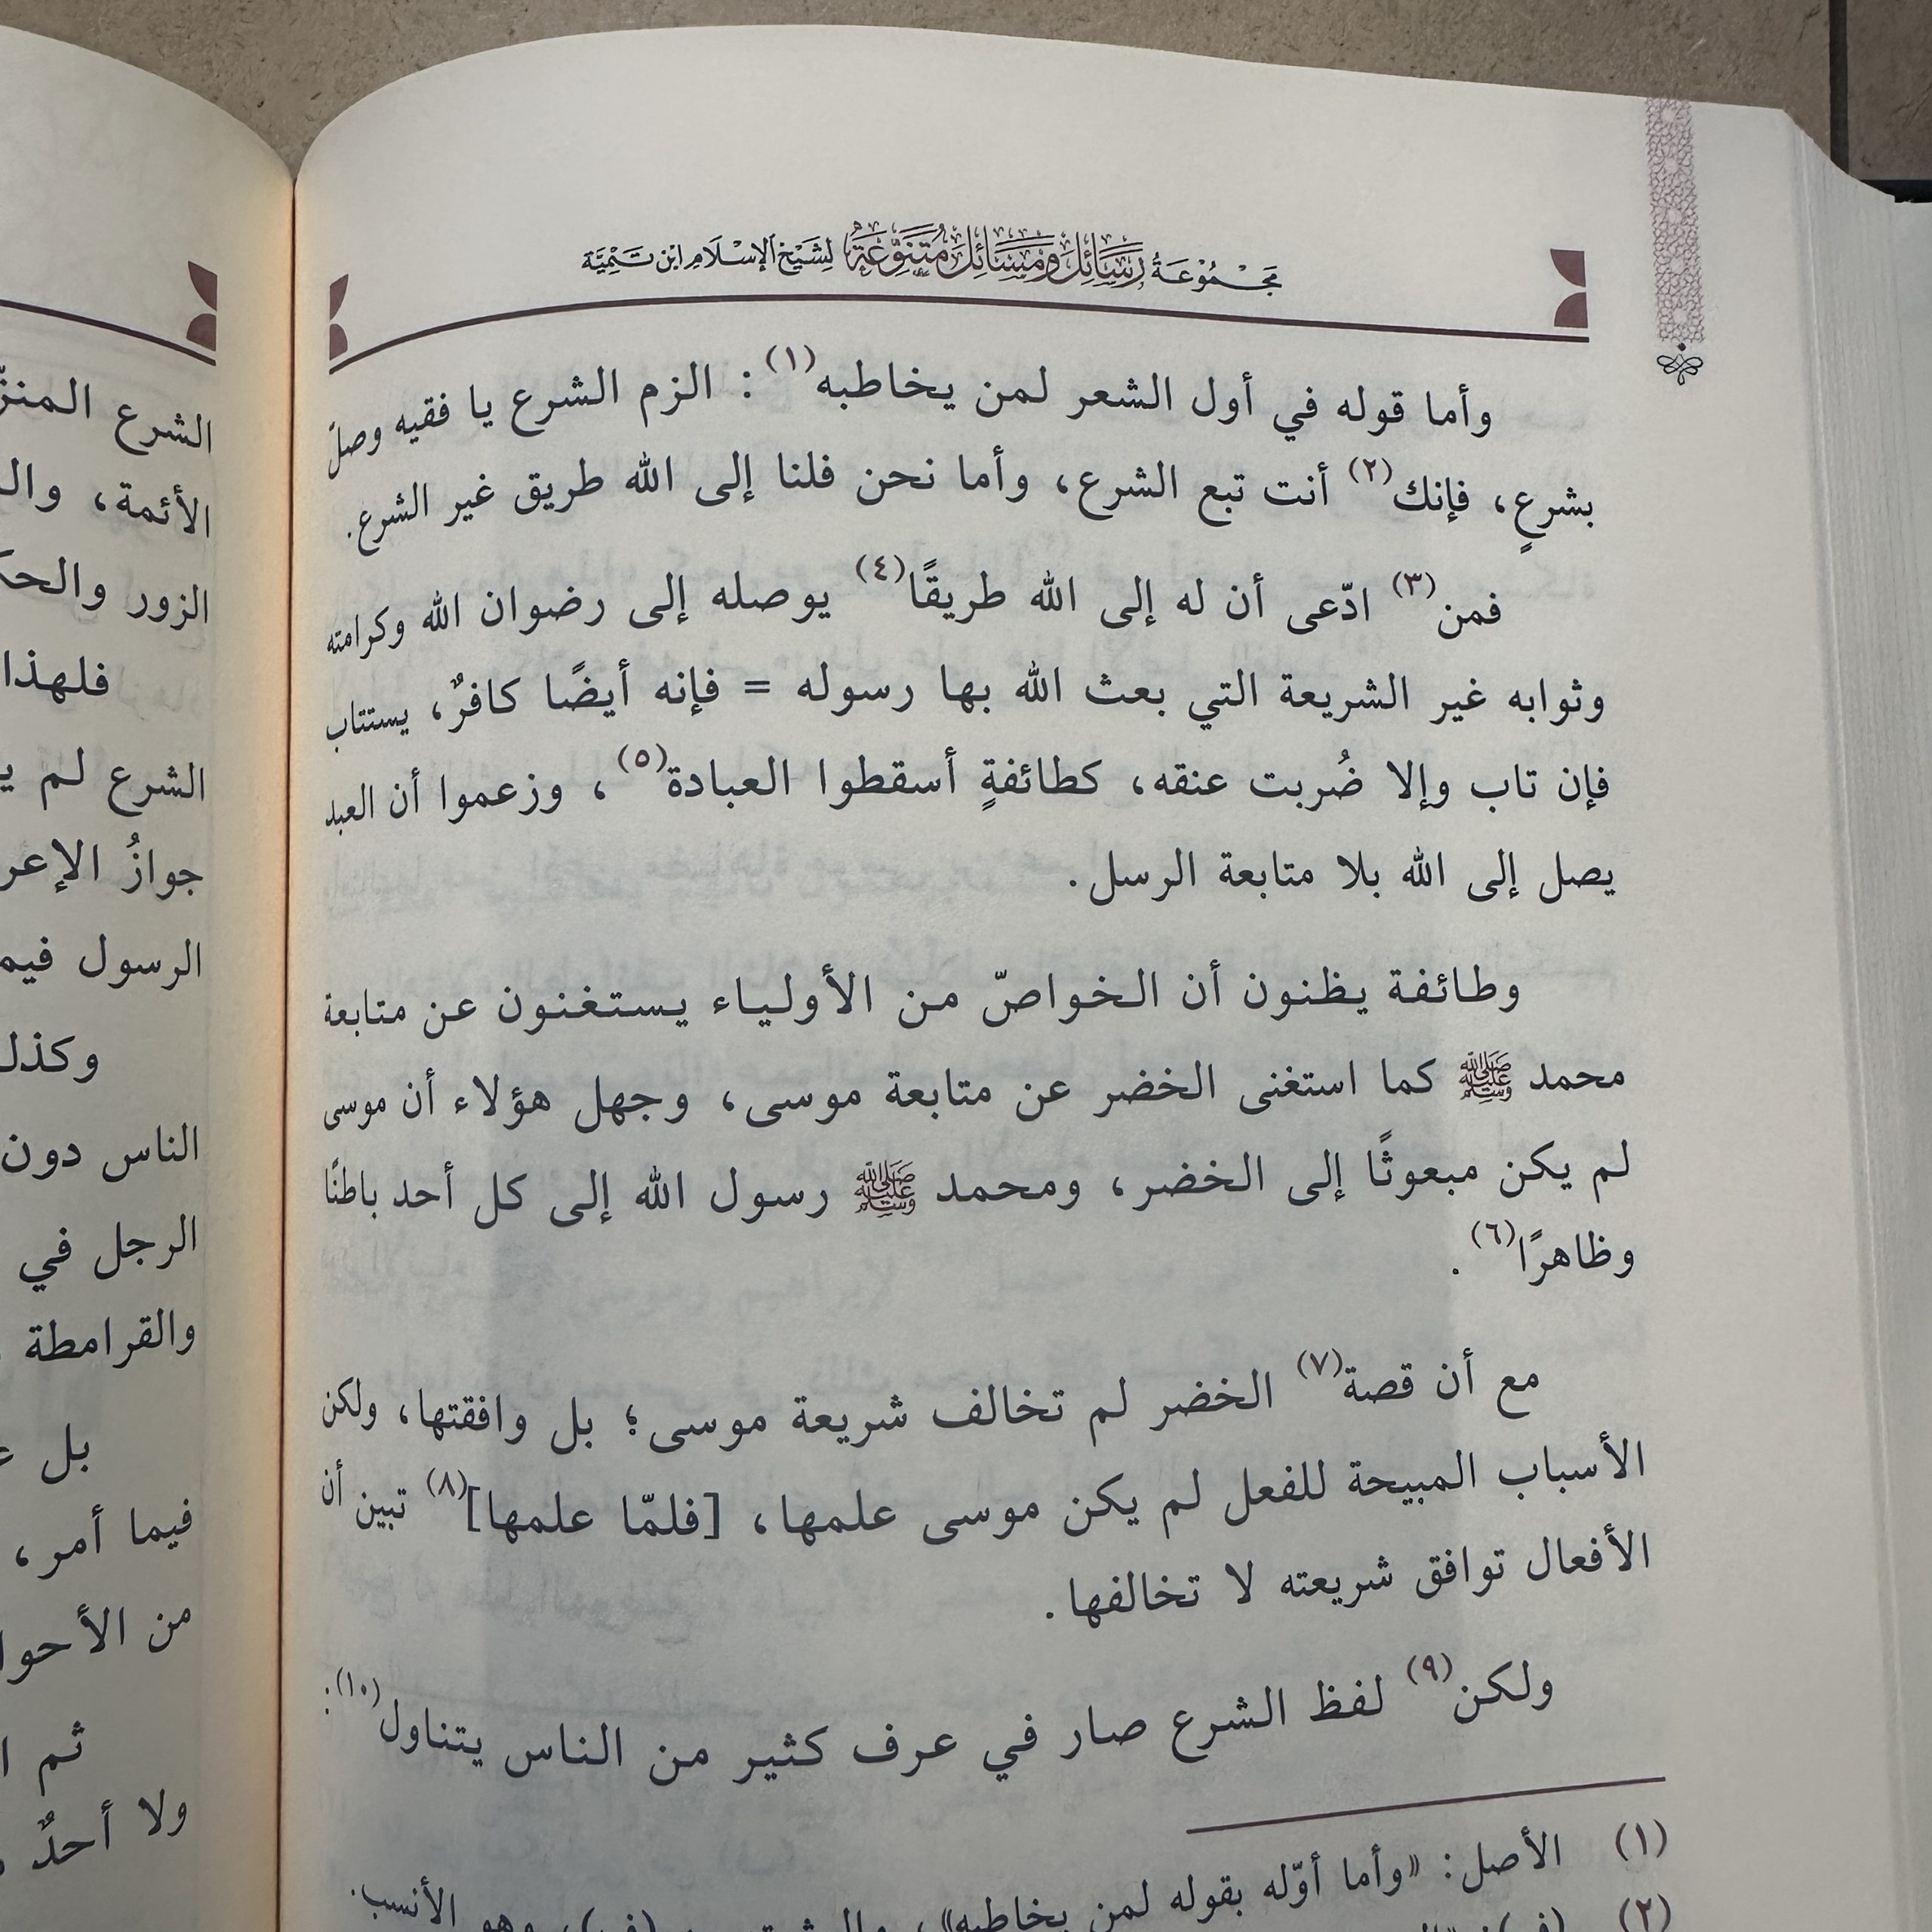 مجموعة رسائل ومسائل متنوعة لشيخ الإسلام ابن تيمية
وأما قوله في أول الشعر لمن يخاطبه(١): الزم الشرع يا فقيه وصلّ
بشرعٍ، فإنك(٢) أنت تبع الشرع، وأما نحن فلنا إلى الله طريق غير الشرع.
فمن(٣) ادّعى أن له إلى الله طريقًا(٤) يوصله إلى رضوان الله وكرامته
وثوابه غير الشريعة التي بعث الله بها رسوله = فإنه أيضًا كافرٌ، يستتاب
فإن تاب وإلا ضُربت عنقه، كطائفةٍ أسقطوا العبادة(٥)، وزعموا أن العبد
يصل إلى الله بلا متابعة الرسل.
وطائفة يظنون أن الخواصّ من الأولياء يستغنون عن متابعة
محمد ﷺ كما استغنى الخضر عن متابعة موسى، وجهل هؤلاء أن موسى
لم يكن مبعوثًا إلى الخضر، ومحمد ﷺ رسول الله إلى كل أحد باطنًا
وظاهرًا(٦).
مع أن قصة(٧) الخضر لم تخالف شريعة موسى؛ بل وافقتها، ولكن
الأسباب المبيحة للفعل لم يكن موسى علمها، [فلمّا علمها](٨) تبين أن
الأفعال توافق شريعته لا تخالفها.
ولكن(٩) لفظ الشرع صار في عرف كثير من الناس يتناول(١٠):
(١) الأصل: «وأما أوّله بقوله لمن يخاطبه»،
(٢) وهو الأنسب.
الشرع
الأئمة،
الزور
فلهذا
الشرع لم
جوازُ
الرسول
الناس دون
الرجل في
والقرامطة
بل
فيما أمر،
من
ثم
ولا أحدٌ